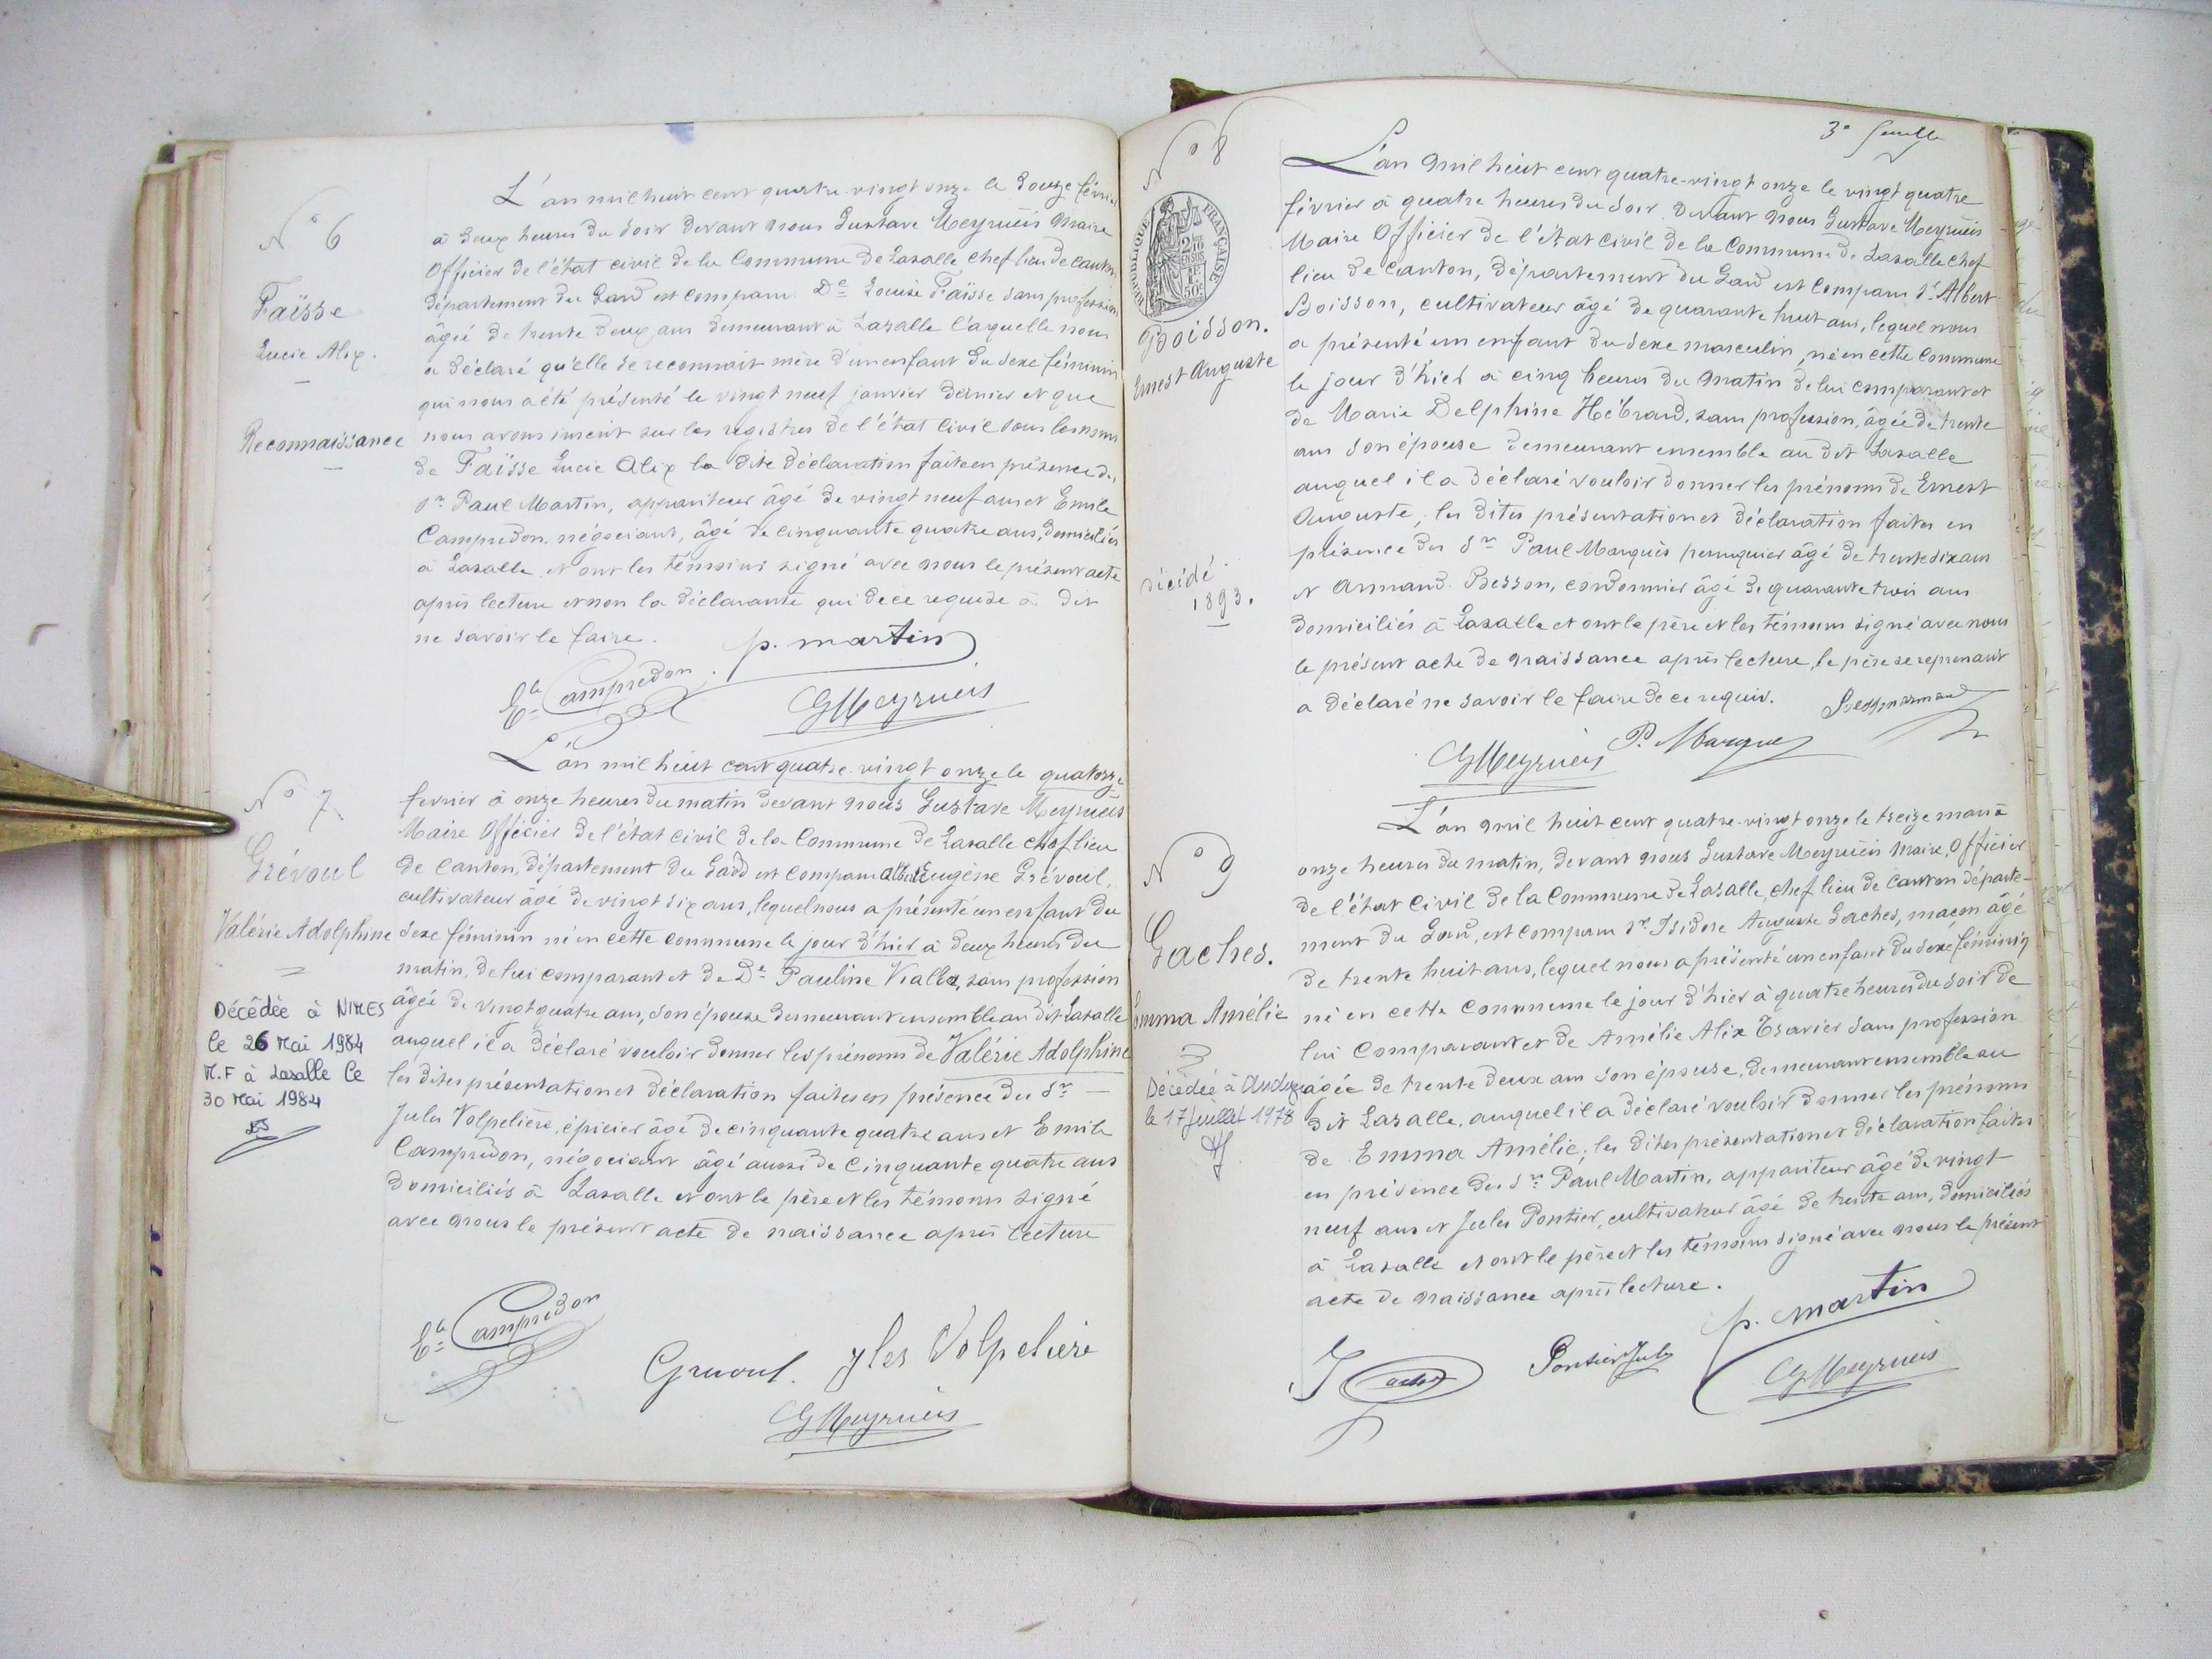 N° 6
Faïsse
Lucie Alix.
Reconnaissance
L'an mil huit cent quatre-vingt onze le douze février
à deux heures du soir devant nous Gustave Meyrueis Maire
Officier de l'état civil de la Commune de Lasalle chef lieu de canton,
département du Gard est comparu De Louise Faïsse sans profession
âgée de trente deux ans demeurant à Lasalle laquelle nous
a déclaré qu'elle se reconnait mère d'un enfant du sexe féminin
qui nous a été présenté le vingt neuf janvier dernier et que
nous avons inscrit sur les registres de l'état civil sous les noms
de Faïsse Lucie Alix la dite déclaration faite en présence des
Sr Paul Martin, appariteur âgé de vingt neuf ans et Emile
Campredon, négociant, âgé de cinquante quatre ans, domiciliés
à Lasalle, et ont les témoins signé avec nous le présent acte
après lecture et non la déclarante qui de ce requise a dit
ne savoir le faire.
p. martin
Ele Campredon.
G Meyrueis
N° 7
Grévoul
Valérie Adolphine
Décédée à NIMES
le 26 Mai 1984
M.F à Lasalle le
30 Mai 1984
L'an mil huit cent quatre-vingt onze le quatorze
fevrier à onze heures du matin devant nous Gustave Meyrueis
Maire Officier de l'état civil de la Commune de Lasalle chef lieu
de Canton, département du Gard est comparu Albert Eugène Grévoul,
cultivateur âgé de vingt six ans, lequel nous a présenté un enfant du
sexe féminin né en cette commune le jour d'hier à deux heures du
matin, de lui comparant et de De Pauline Vialla, sans profession
âgée de vingt quatre ans, son épouse demeurant ensemble au dit Lasalle
auquel il a déclaré vouloir donner les prénoms de Valérie Adolphine
les dites présentation et déclaration faites en présence des Srs
Jules Volpelière, épicier âgé de cinquante quatre ans et Emile
Campredon, négociant âgé aussi de cinquante quatre ans
domiciliés à Lasalle et ont le père et les témoins signé
avec nous le présent acte de naissance après lecture
Ele Campredon
Grevoul. Jles Volpeliere
G Meyrueis
3e feuille
N° 8
RÉPUBLIQUE FRANÇAISE
2/10 EN SUS
50c
Boisson.
Ernest Auguste
décédé
1893.
L'an Mil huit cent quatre-vingt onze le vingt quatre
février à quatre heures du soir devant nous Gustave Meyrueis
Maire Officier de l'état civil de la Commune de Lasalle chef
lieu de Canton, département du Gard est comparu Sr Albert
Boisson, cultivateur âgé de quarante huit ans, lequel nous
a présenté un enfant du sexe masculin, né en cette commune
le jour d'hier à cinq heures du matin de lui comparant et
de Marie Delphine Hébrard, sans profession, âgée de trente
ans son épouse demeurant ensemble au dit Lasalle
auquel il a déclaré vouloir donner les prénoms de Ernest
Auguste, les dites présentation et déclaration faites en
présence des Srs Paul Marquès perruquier âgé de trente six ans
et Armand Besson, cordonnier âgé de quarante trois ans
domiciliés à Lasalle et ont le père et les témoins signé avec nous
le présent acte de naissance après lecture, le père se reprenant
a déclaré ne savoir le faire de ce requis.
G Meyrueis P. Marques
N° 9
Gaches.
Emma Amélie
Décédée à Anduze
le 17 Juillet 1978
L'an Mil huit cent quatre-vingt onze le treize mars à
onze heures du matin, devant nous Gustave Meyrueis Maire, Officier
de l'état civil de la Commune de Lasalle, chef lieu de Canton départe-
ment du Gard, est comparu Sr Isidore Auguste Gaches, maçon âgé
de trente huit ans, lequel nous a présenté un enfant du sexe féminin
né en cette commune le jour d'hier à quatre heures du soir de
lui comparant et de Amélie Alix Euzavier sans profession
âgée de trente deux ans son épouse, demeurant ensemble au
dit Lasalle, auquel il a déclaré vouloir donner les prénoms
de Emma Amélie; les dites présentation et déclaration faites
en présence des Srs Paul Martin, appariteur âgé de vingt
neuf ans et Jules Pontier, cultivateur âgé de trente ans, domiciliés
à Lasalle et ont le père et les témoins signé avec nous le présent
acte de naissance après lecture.
p. martin
Pontier Jules
G Meyrueis